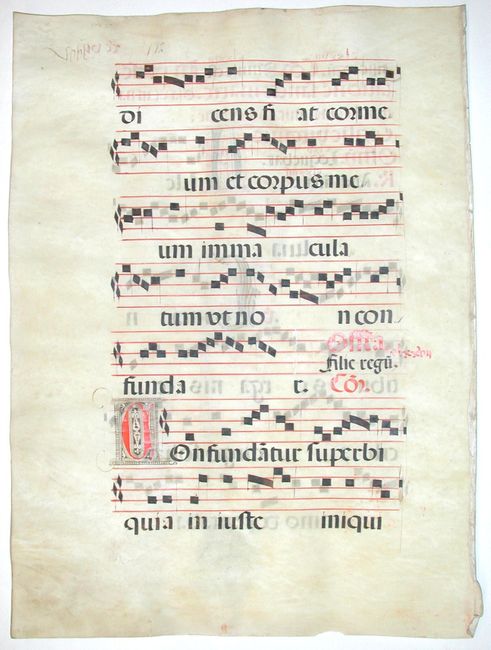 di cens fi at cor me
um et corpus me
um imma cula
tum vt no n con
funda r.
Offa
Filie regū.
Cōr.
COnfundātur superbi
quia in iuste iniqui